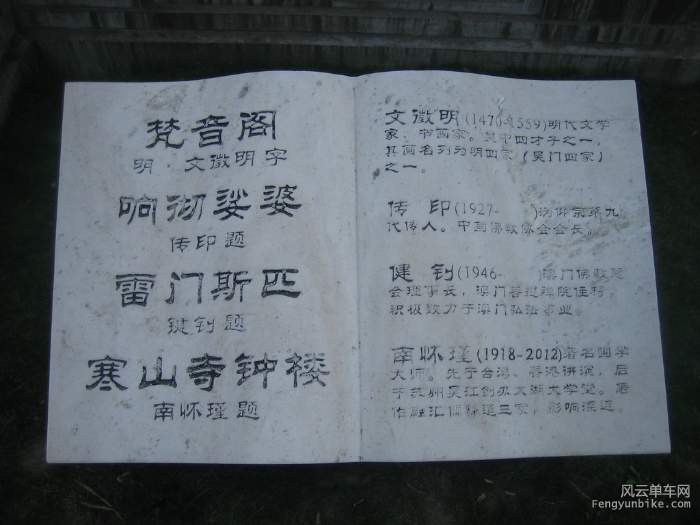 梵音阁
明·文徵明字
响彻娑婆
传印题
雷门斯匹
健钊题
寒山寺钟楼
南怀瑾题
文徵明(1470-1559)明代文学
家、书画家。吴中四才子之一,
其画名列为明四家(吴门四家)
之一。
传印(1927-    )沩仰宗第九
代传人。中国佛教协会会长。
健钊(1946-    )澳门佛教总
会理事长,澳门菩提禅院住持。
积极致力于澳门弘法事业。
南怀瑾(1918-2012)著名国学
大师。先于台湾、香港讲演,后
于苏州吴江创办太湖大学堂。著
作融汇儒释道三家,影响深远。
风云单车网
Fengyunbike.com